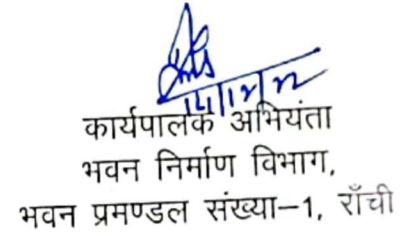 14/12/22
कार्यपालक अभियंता
भवन निर्माण विभाग,
भवन प्रमण्डल संख्या-1, राँची